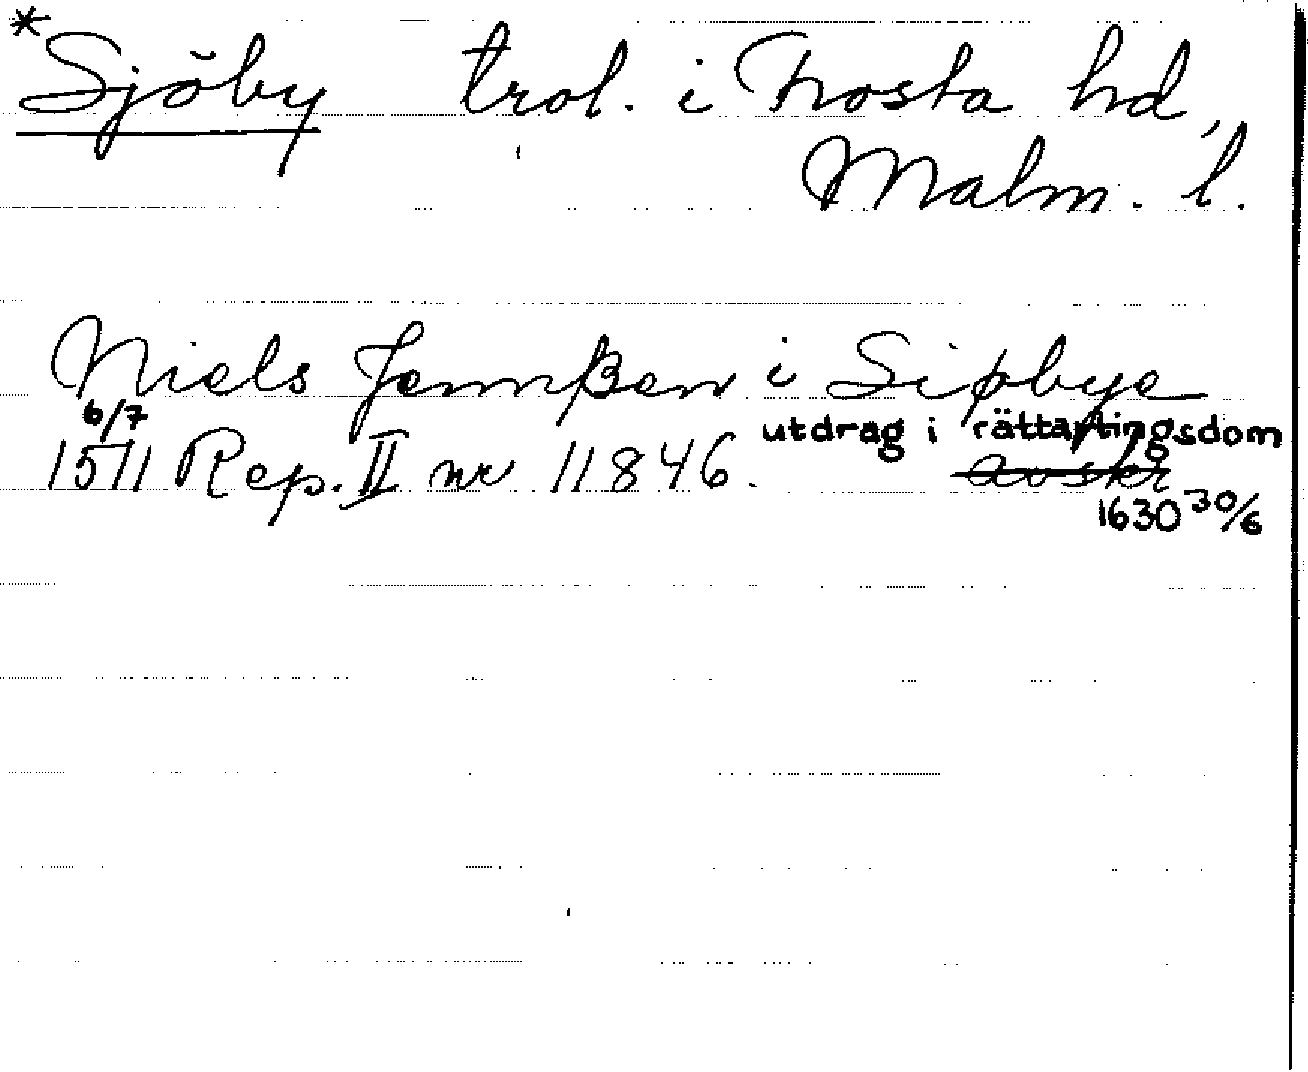 * Sjöby trol. i Frosta hd,
Malm. l.
Niels Jennßen i Siøbye
6/7
1511 Rep. II nr 11846. utdrag i rättartingsdom
avskr
1630 30/6